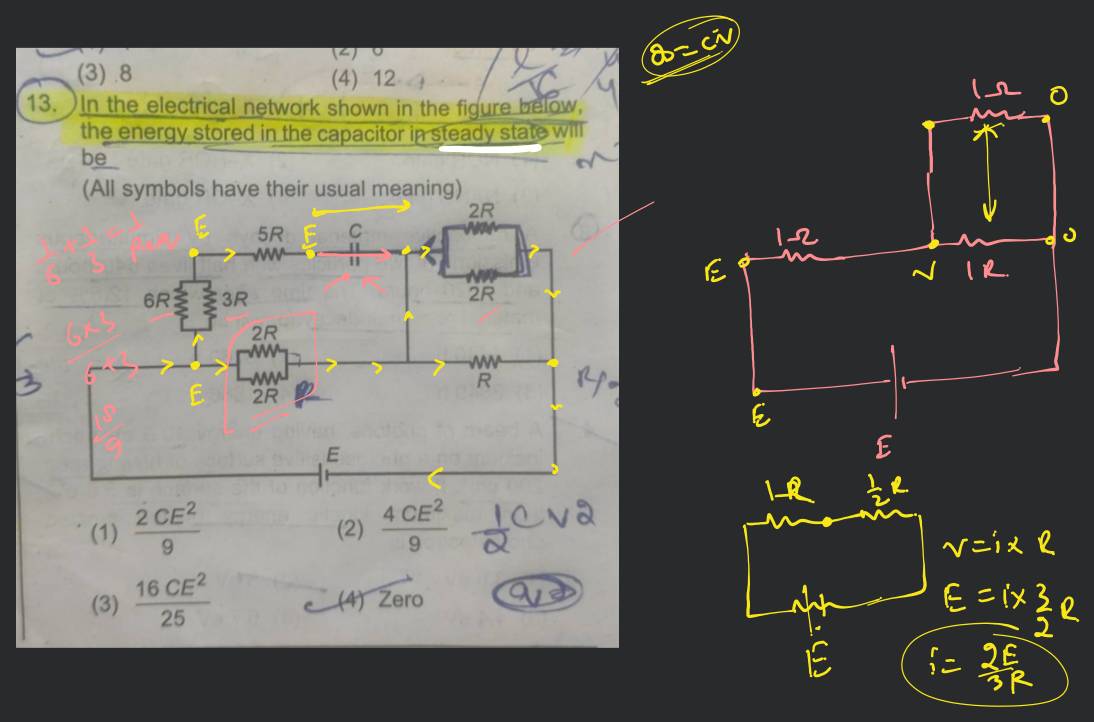 (2) 6
(3) 8
(4) 12
13. In the electrical network shown in the figure below,
the energy stored in the capacitor in steady state will
be
(All symbols have their usual meaning)
E
5R
E
C
2R
2R
6R
3R
6×3
2R
2R
E
R
E
18
9
(1) 2 CE²/9
(2) 4 CE²/9
½CV2
(3) 16 CE²/25
(4) Zero
1Ω
O
1Ω
E
V
1R
O
E
E
1R
½R
E
V = i × R
E = i × 3/2 R
i = 2E/3R